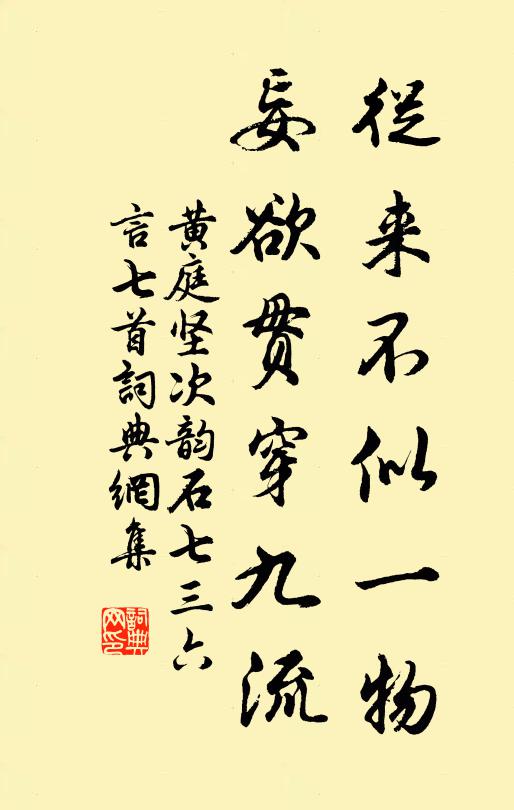 從来不似一物
妄欲貫穿九流
黄庭坚次韵石七三六
言七首詞典網集
詞典
网印